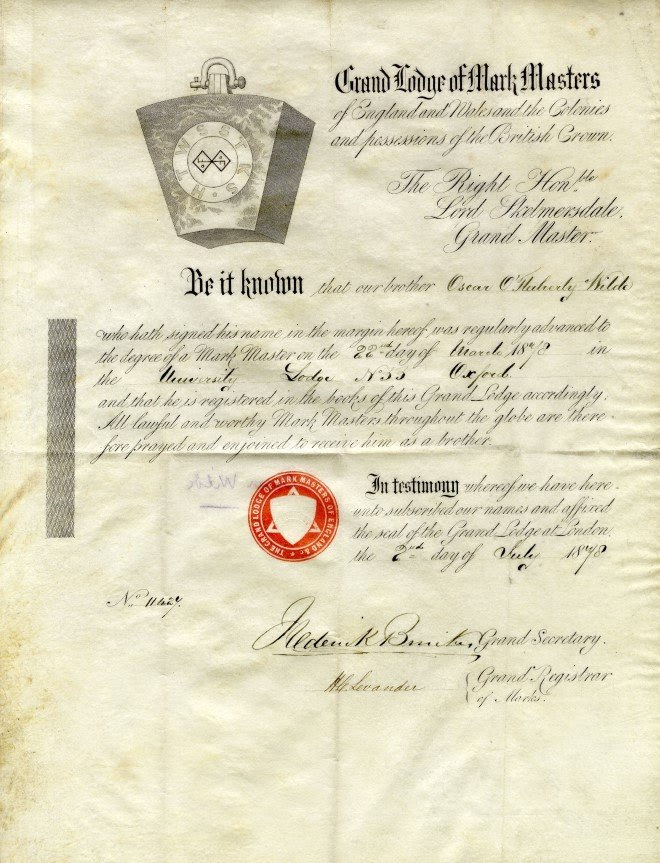 HTWSSTKS
Grand Lodge of Mark Masters
of England and Wales and the Colonies
and possessions of the British Crown.
The Right Honble
Lord Skelmersdale,
Grand Master.
Be it known that our brother Oscar O'Flaherty Wilde
who hath signed his name in the margin hereof was regularly advanced to
the degree of a Mark Master on the 22nd day of March 1878 in
the University Lodge No 55 Oxford
and that he is registered in the books of this Grand Lodge accordingly.
All lawful and worthy Mark Masters throughout the globe are there
fore prayed and enjoined to receive him as a brother.
THE GRAND LODGE OF MARK MASTERS OF ENGLAND &c
In testimony whereof we have here
unto subscribed our names and affixed
the seal of the Grand Lodge at London.
the 2nd day of July 1878
No
Frederick Binckes Grand Secretary.
H C Levander Grand Registrar
of Marks.